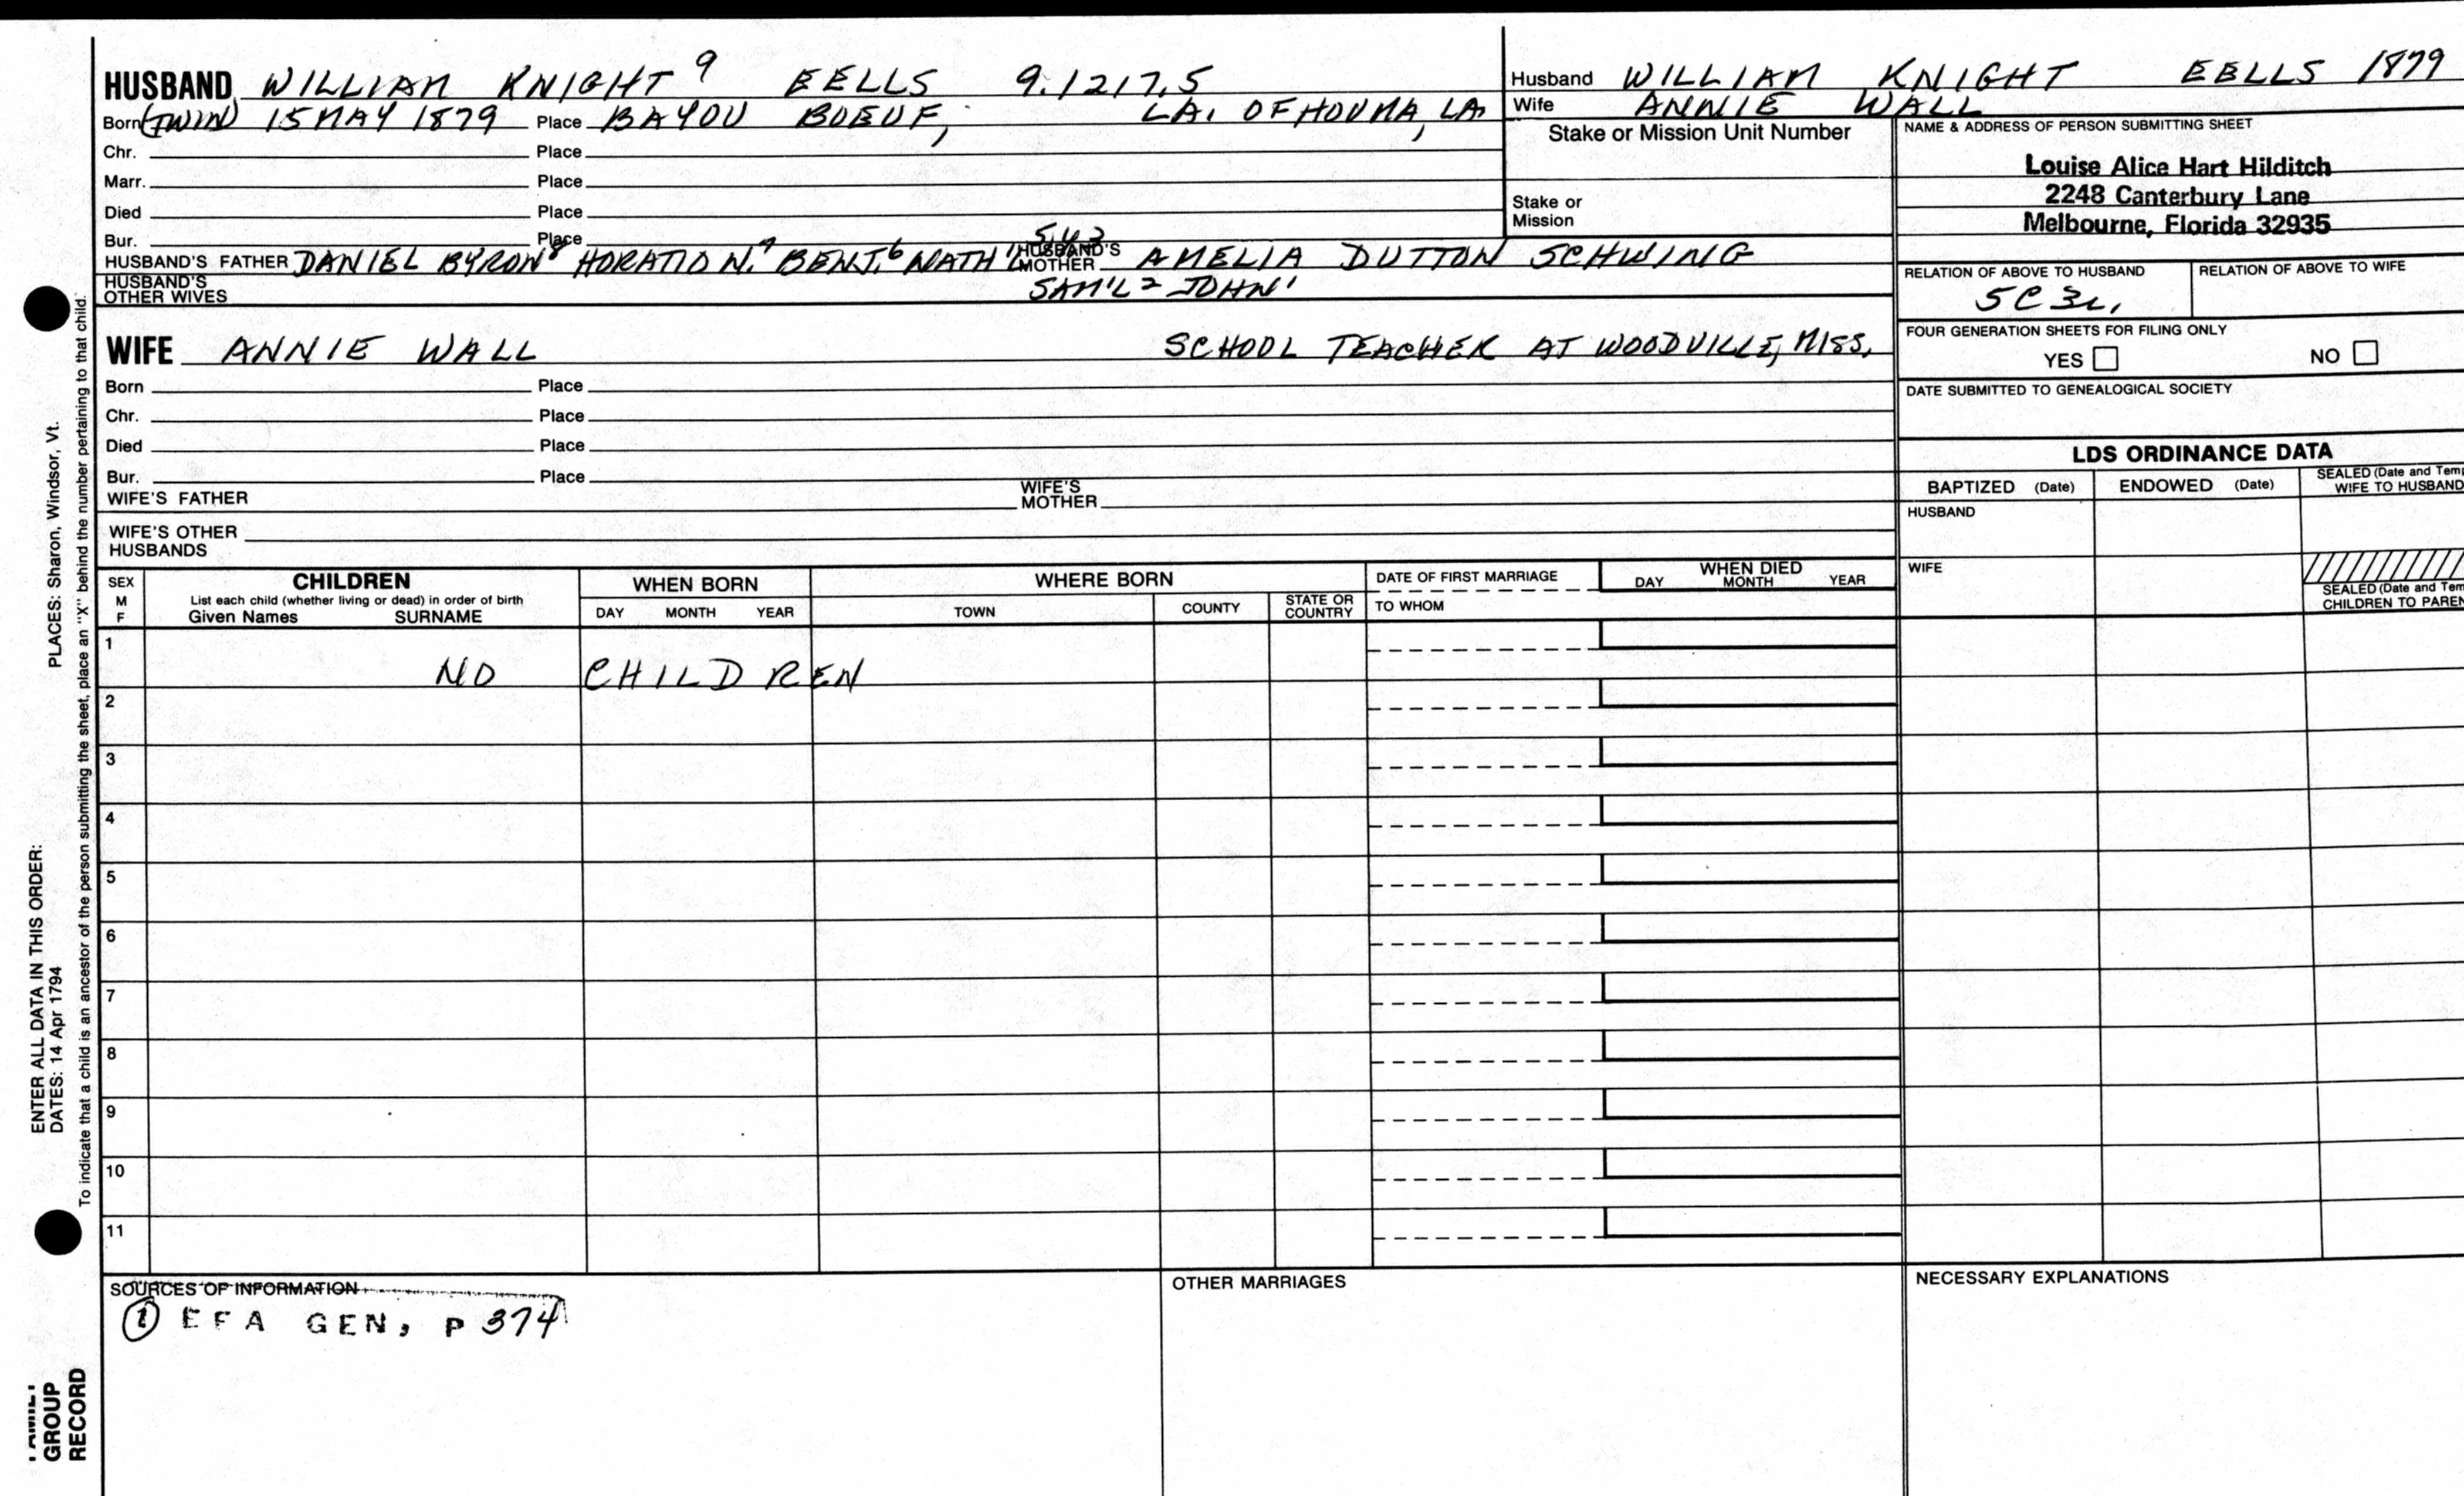 HUSBAND WILLIAM KNIGHT 9 EELLS 9.1217.5
Born (TWIN) 15 MAY 1879 Place BAYOU BOEUF, LA. OF HOUMA, LA.
Chr. Place
Marr. Place
Died Place
Bur. Place
HUSBAND'S FATHER DANIEL BYRON 8 HORATIO N. 7 BENJ. 6 NATH'L 5,4,3 HUSBAND'S MOTHER AMELIA DUTTON SCHWING
SAM'L 2 JOHN 1
HUSBAND'S OTHER WIVES
WIFE ANNIE WALL SCHOOL TEACHER AT WOODVILLE, MISS.
Born Place
Chr. Place
Died Place
Bur. Place
WIFE'S FATHER WIFE'S MOTHER
WIFE'S OTHER HUSBANDS
Husband WILLIAM KNIGHT EELLS 1879
Wife ANNIE WALL
Stake or Mission Unit Number
Stake or
Mission
NAME & ADDRESS OF PERSON SUBMITTING SHEET
Louise Alice Hart Hilditch
2248 Canterbury Lane
Melbourne, Florida 32935
RELATION OF ABOVE TO HUSBAND RELATION OF ABOVE TO WIFE
5C3r,
FOUR GENERATION SHEETS FOR FILING ONLY
YES NO
DATE SUBMITTED TO GENEALOGICAL SOCIETY
LDS ORDINANCE DATA
BAPTIZED (Date) ENDOWED (Date) SEALED (Date and Tem
WIFE TO HUSBAND
HUSBAND
WIFE
SEALED (Date and Tem
CHILDREN TO PAREN
SEX
M
F
CHILDREN
List each child (whether living or dead) in order of birth
Given Names SURNAME
WHEN BORN
DAY MONTH YEAR
WHERE BORN
TOWN COUNTY STATE OR COUNTRY
DATE OF FIRST MARRIAGE
TO WHOM
WHEN DIED
DAY MONTH YEAR
1
NO CHILDREN
2
3
4
5
6
7
8
9
10
11
SOURCES OF INFORMATION
① EFA GEN, P 374
OTHER MARRIAGES
NECESSARY EXPLANATIONS
ENTER ALL DATA IN THIS ORDER:
DATES: 14 Apr 1794 PLACES: Sharon, Windsor, Vt.
To indicate that a child is an ancestor of the person submitting the sheet, place an "X" behind the number pertaining to that child.
FAMILY
GROUP
RECORD